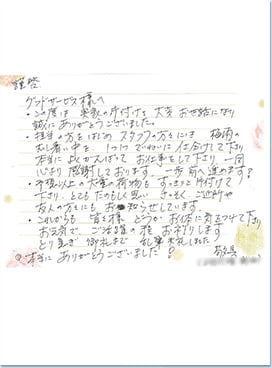 謹啓
グッドサービス様へ
・この度は 実家の片付けを 大変 お世話になり
誠に ありがとうございました。
・担当の方をはじめ スタッフの方々には 梅雨の
むし暑い中を、1つ1つ ていねいに 仕分けして下さり
本当に よくがんばって お仕事をして下さり 一同
心より 感謝しております。一歩 前へ進めます?
・予想以上の 大量の荷物も すっきりと片付けて
下さり、とてもたのもしく思い さっそく ご近所や
友人の方々にも お知らせしています。
・これからも 皆々様 どうかお体に気をつけて下さり
お元気で ご活躍の程 お祈りします
とり急ぎ 御礼まで 乱筆 乱礼しました
敬具
◎本当に ありがとうございました!